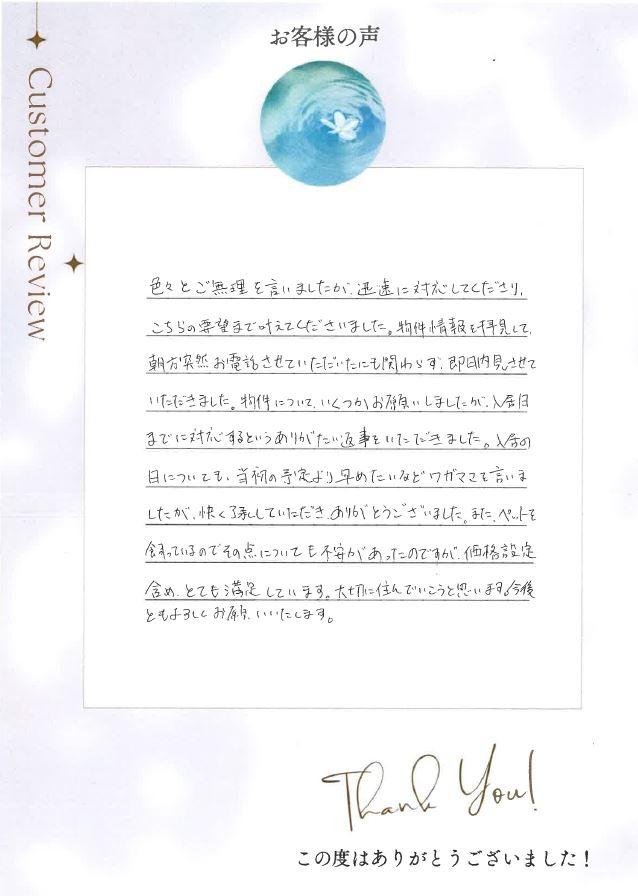 お客様の声
Customer Review
色々とご無理を言いましたが、迅速に対応してくださり、
こちらの要望まで叶えてくださいました。物件情報を拝見して、
朝方突然お電話させていただいたにも関わらず、即日内見させて
いただきました。物件について、いくつかお願いしましたが、入居日
までに対応するというありがたい返事をいただきました。入居の
日についても、当初の予定より早めたいなどワガママを言いま
したが、快く了承していただき、ありがとうございました。また、ペットを
飼っているのでその点についても不安があったのですが、価格設定
含め、とても満足しています。大切に住んでいこうと思います。今後
ともよろしくお願いいたします。
Thank You!
この度はありがとうございました！